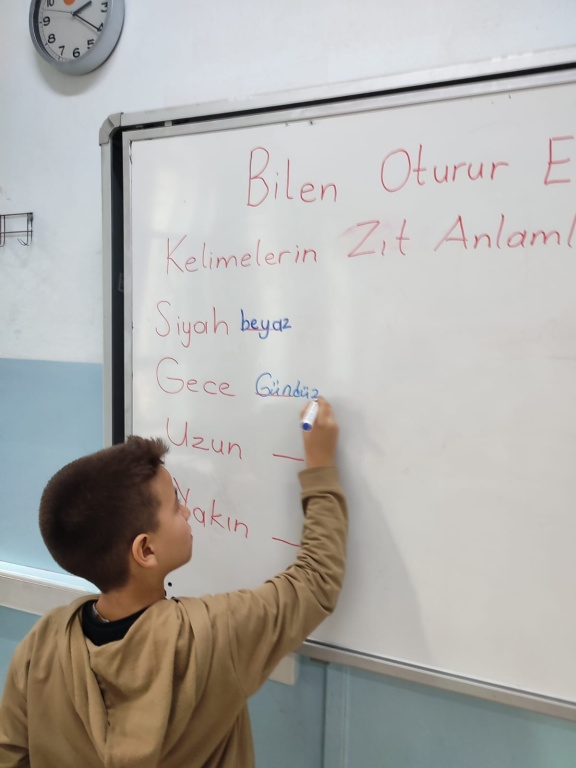 10 2 3 9 4 8 5 7 6
Bilen Oturur E
Kelimelerin Zıt Anlaml
Siyah beyaz
Gece Gündüz
Uzun
Yakın